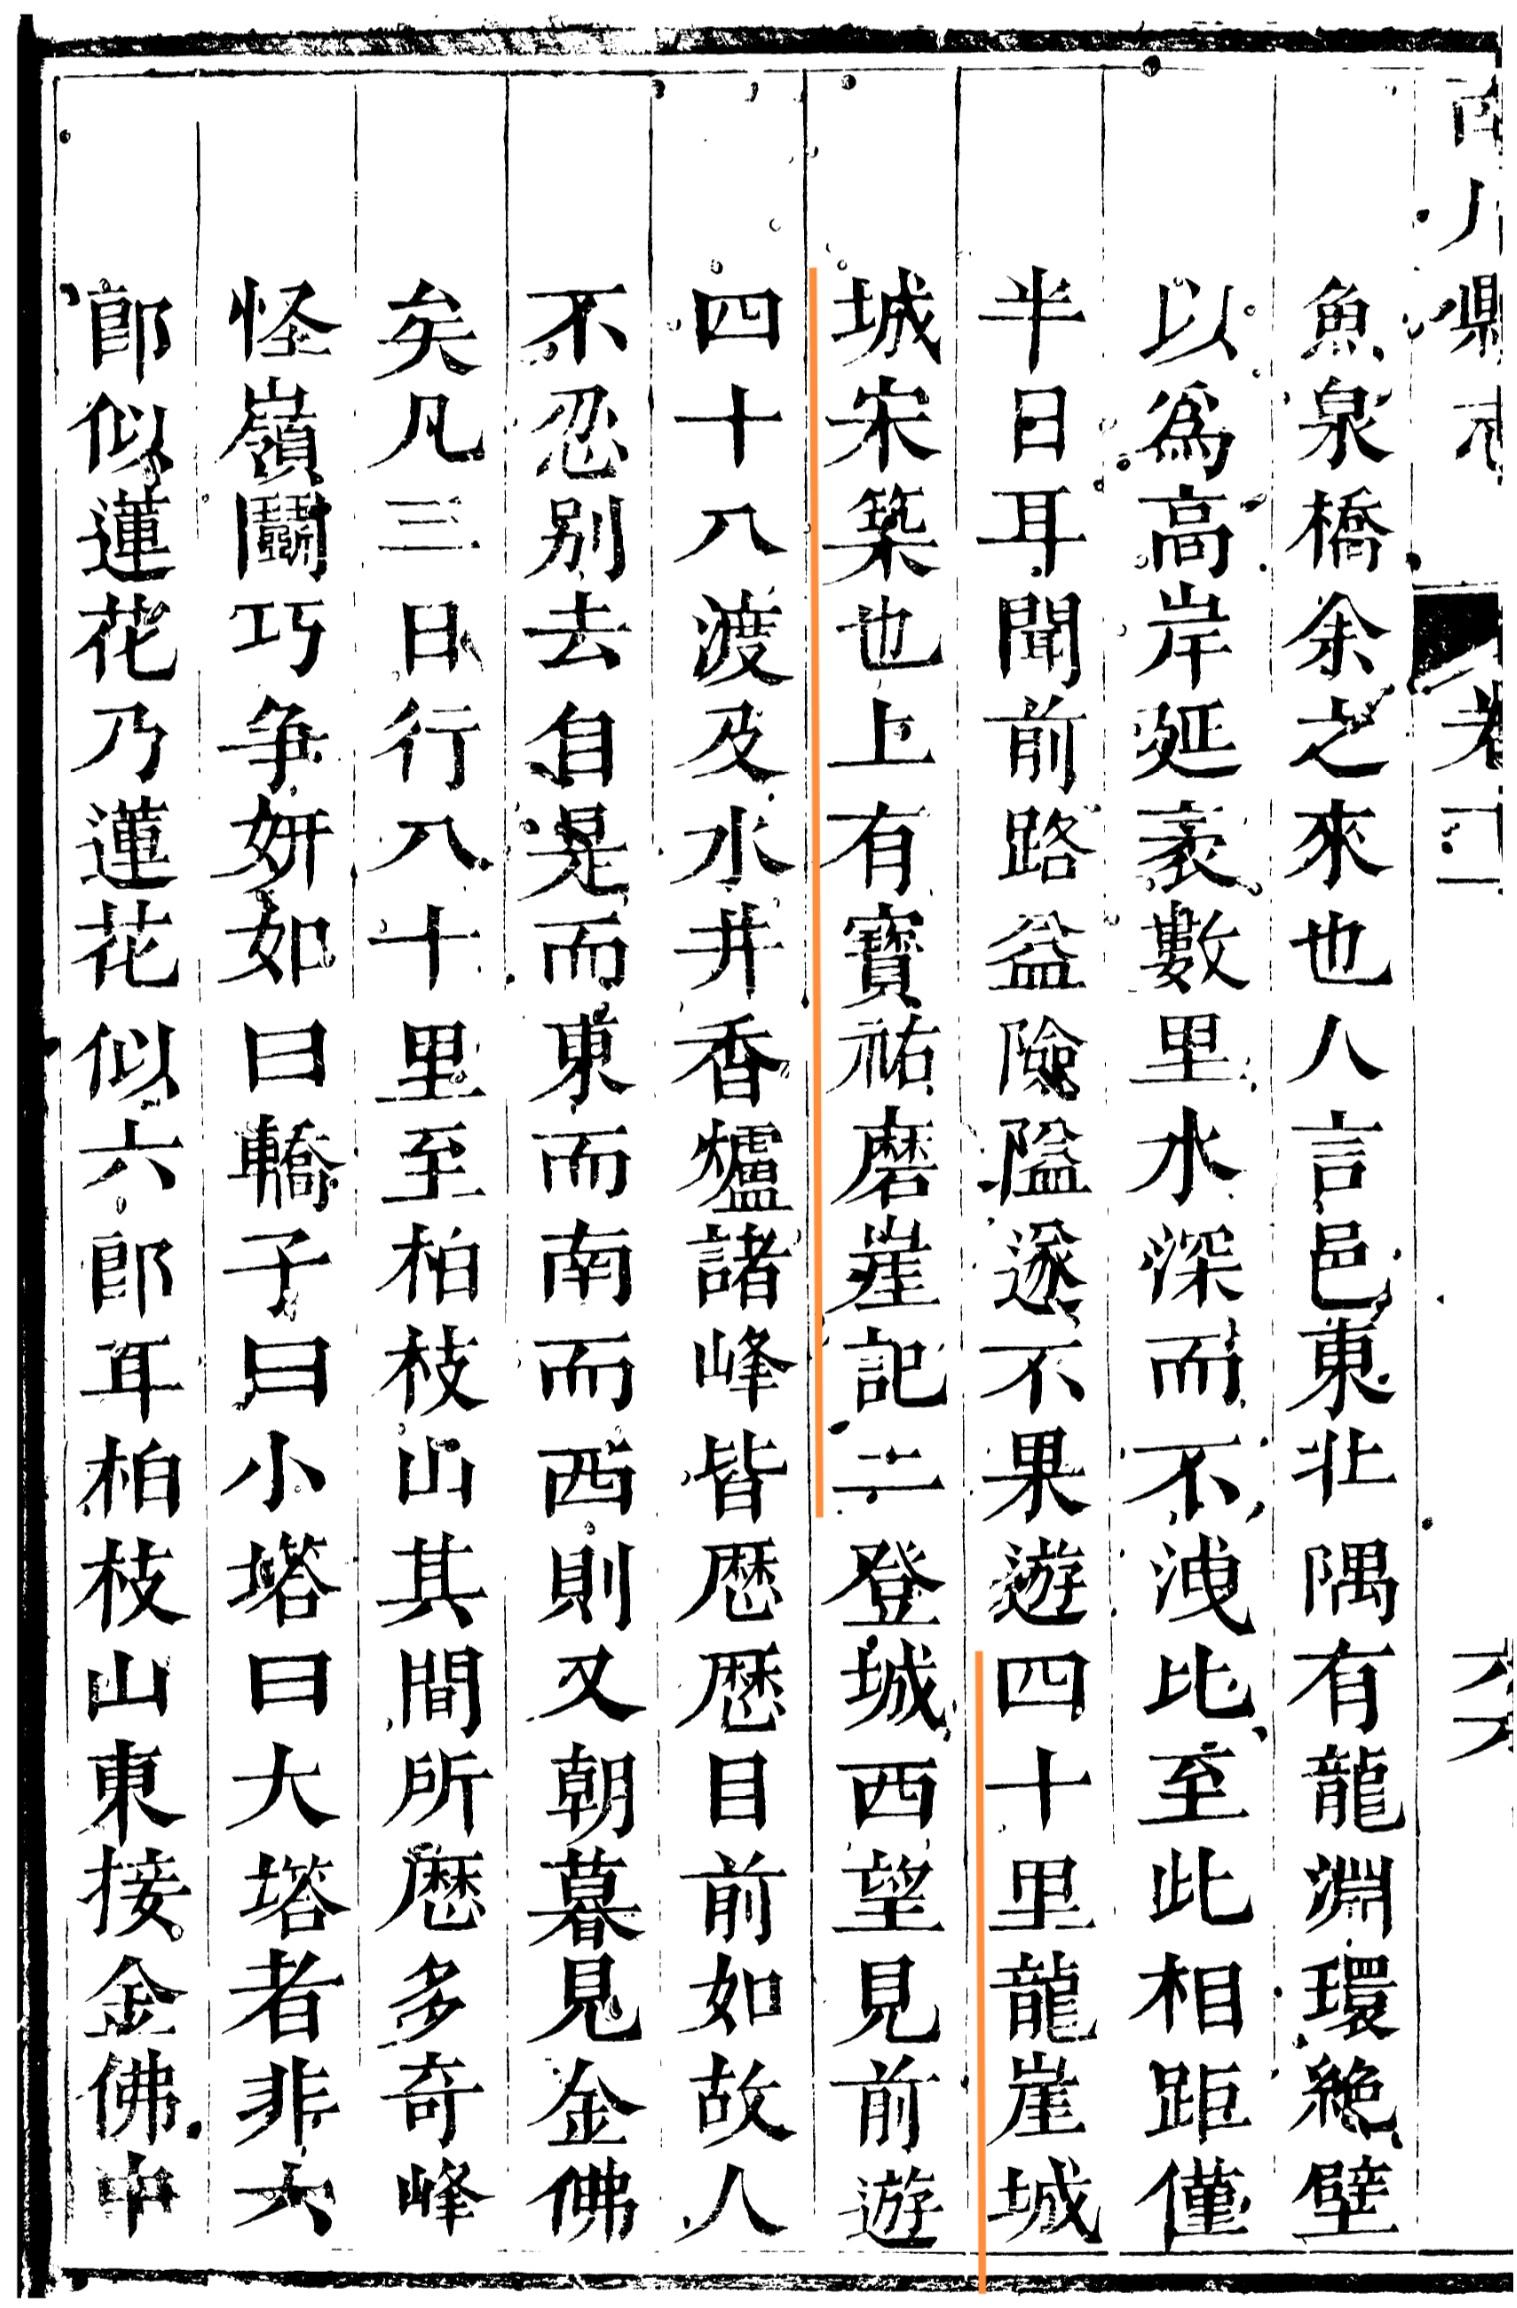 南川縣志 卷十二
魚泉橋余之來也人言邑東北隅有龍淵環絶壁
以爲高岸延袤數里水深而不洩比至此相距僅
半日耳聞前路益險隘遂不果遊四十里龍崖城
城宋築也上有寶祐磨崖記二登城西望見前遊
四十八渡及水井香爐諸峰皆歴歴目前如故人
不忍别去自是而東而南而西則又朝暮見金佛
矣凡三日行八十里至柏枝山其間所歴多奇峰
怪嶺鬭巧争妍如曰轎子曰小塔曰大塔者非六
郎似蓮花乃蓮花似六郎耳柏枝山東接金佛中